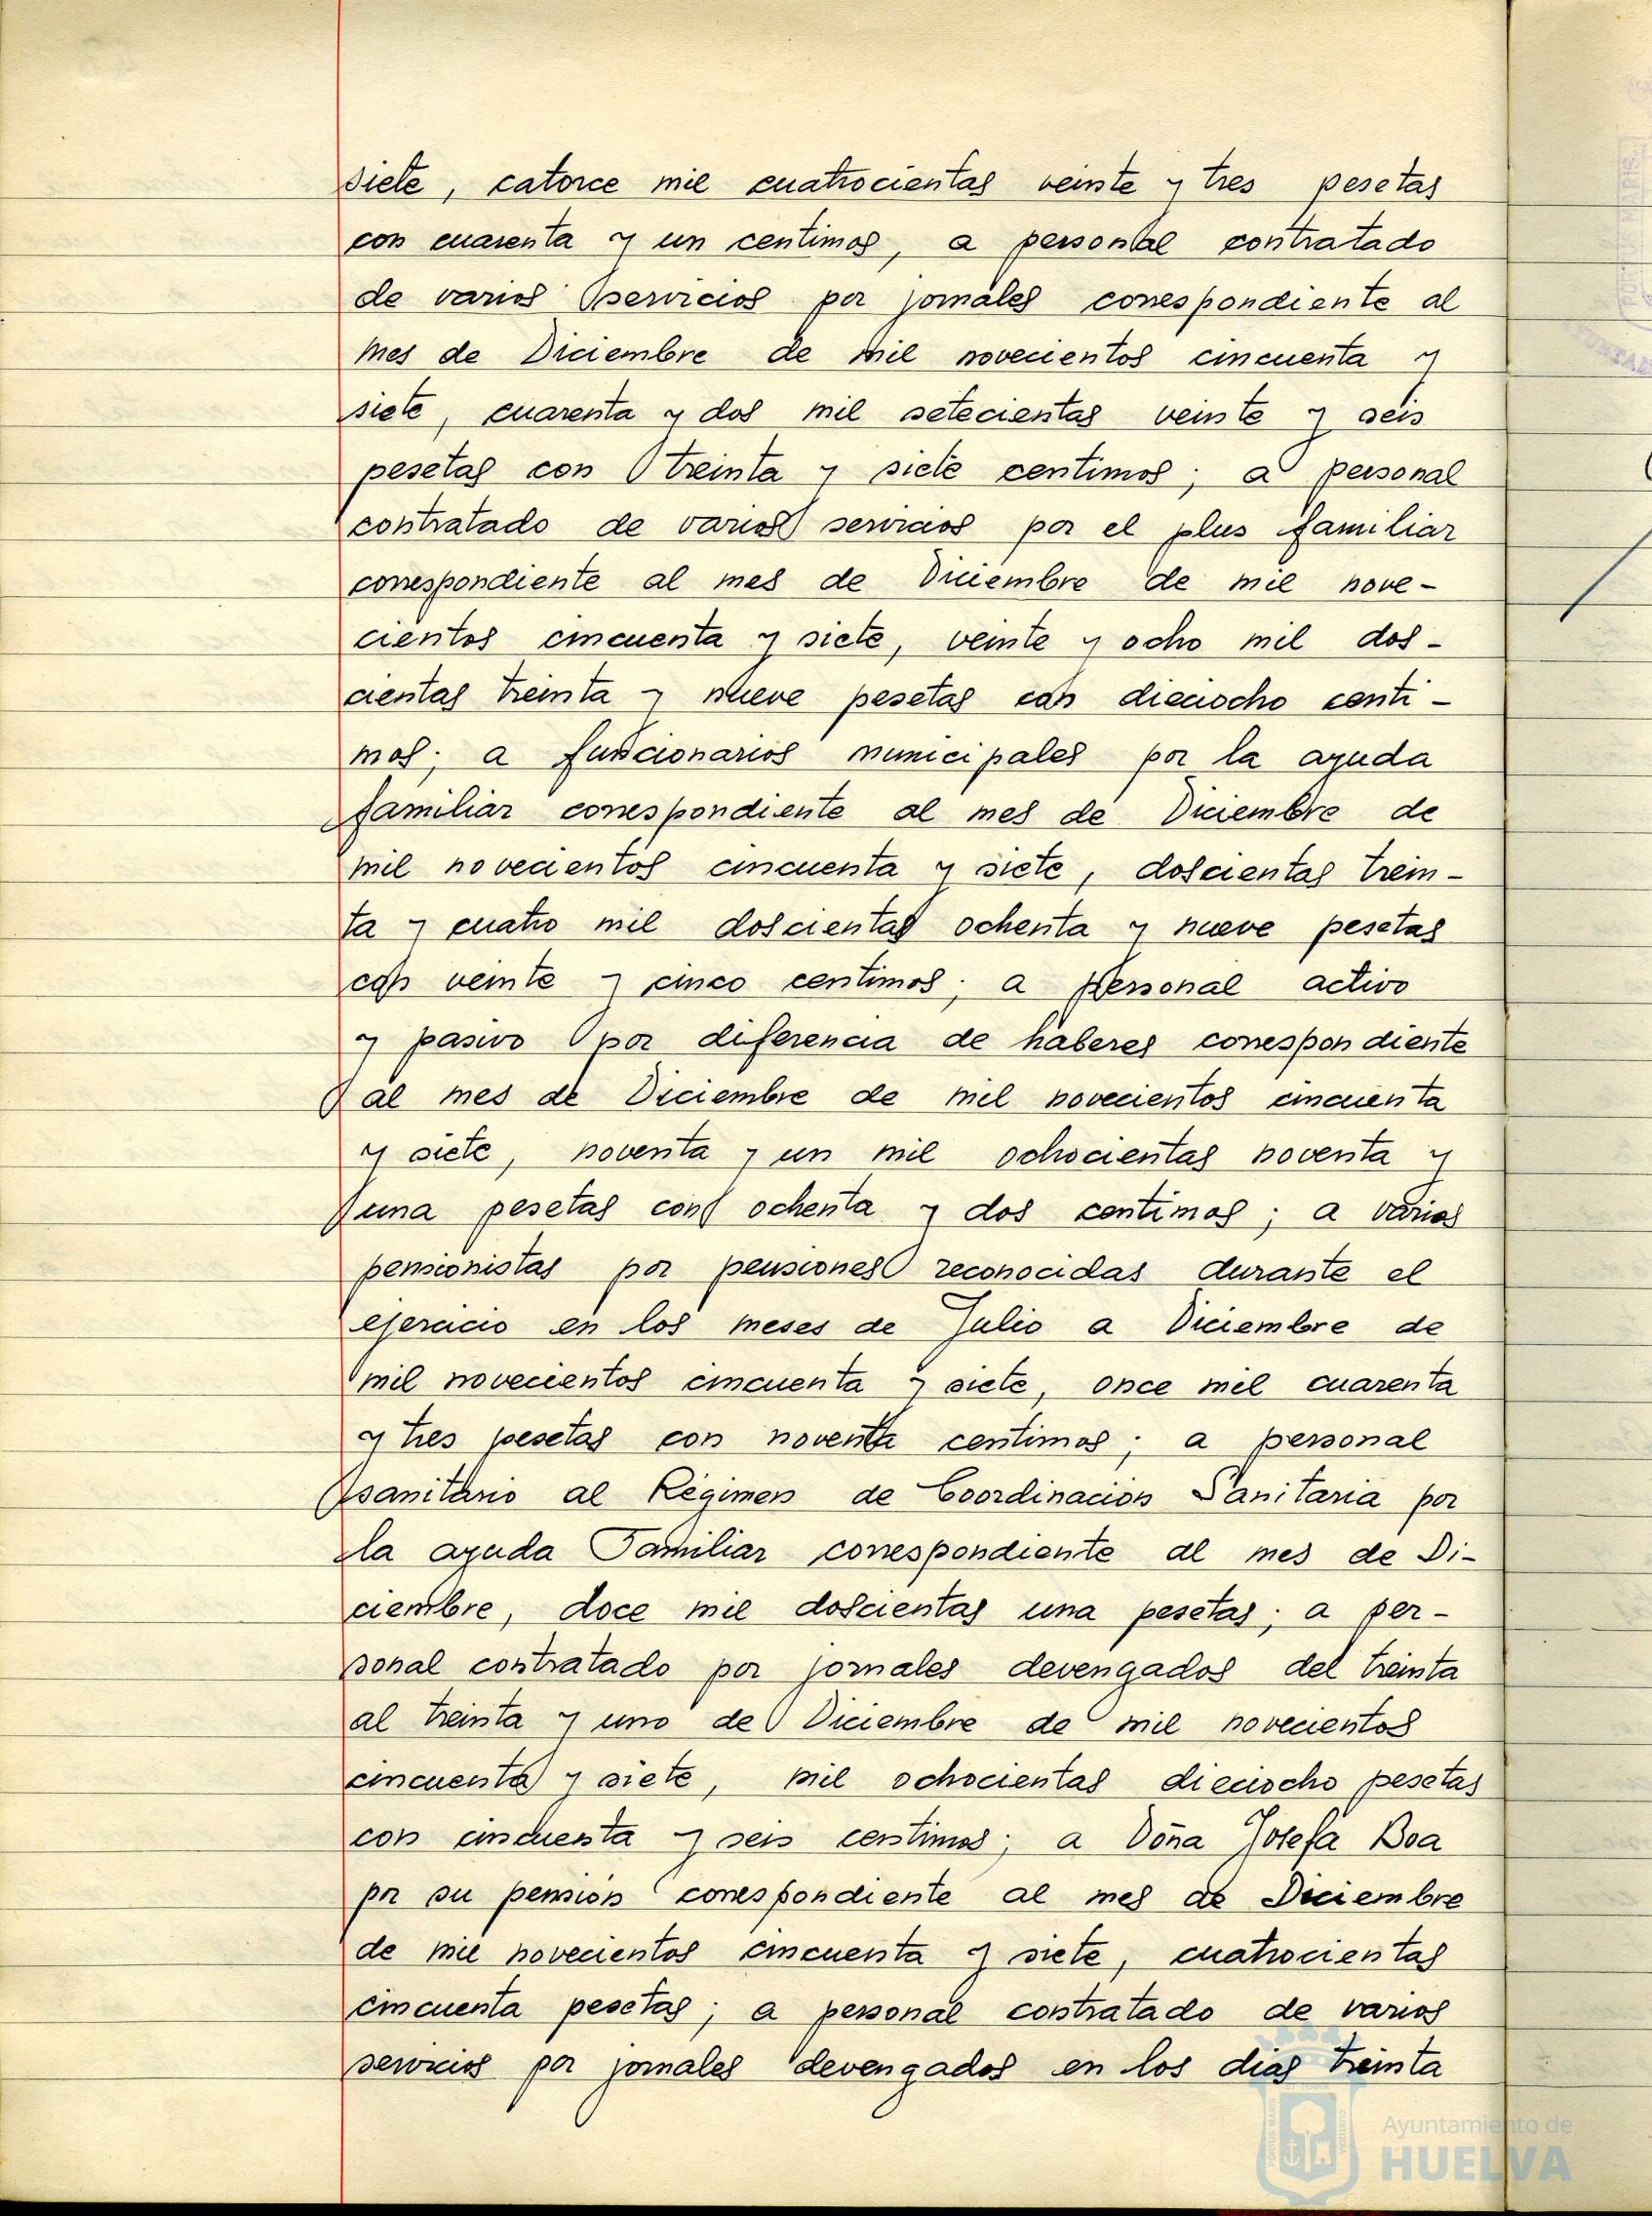 siete, catorce mil cuatrocientas veinte y tres pesetas
con cuarenta y un centimos, a personal contratado
de varios servicios por jornales correspondiente al
mes de Diciembre de mil novecientos cincuenta y
siete, cuarenta y dos mil setecientas veinte y seis
pesetas con treinta y siete centimos; a personal
contratado de varios servicios por el plus familiar
correspondiente al mes de Diciembre de mil nove-
cientos cincuenta y siete, veinte y ocho mil dos-
cientas treinta y nueve pesetas con dieciocho centi-
mos; a funcionarios municipales por la ayuda
familiar correspondiente al mes de Diciembre de
mil novecientos cincuenta y siete, doscientas trein-
ta y cuatro mil doscientas ochenta y nueve pesetas
con veinte y cinco centimos; a personal activo
y pasivo por diferencia de haberes correspondiente
al mes de Diciembre de mil novecientos cincuenta
y siete, noventa y un mil ochocientas noventa y
una pesetas con ochenta y dos centimos; a varios
pensionistas por pensiones reconocidas durante el
ejercicio en los meses de Julio a Diciembre de
mil novecientos cincuenta y siete, once mil cuarenta
y tres pesetas con noventa centimos; a personal
sanitario al Régimen de Coordinación Sanitaria por
la ayuda Familiar correspondiente al mes de Di-
ciembre, doce mil doscientas una pesetas; a per-
sonal contratado por jornales devengados del treinta
al treinta y uno de Diciembre de mil novecientos
cincuenta y siete, mil ochocientas dieciocho pesetas
con cincuenta y seis centimos; a Doña Josefa Boa
por su pensión correspondiente al mes de Diciembre
de mil novecientos cincuenta y siete, cuatrocientas
cincuenta pesetas; a personal contratado de varios
servicios por jornales devengados en los dias treinta
Ayuntamiento de
HUELVA